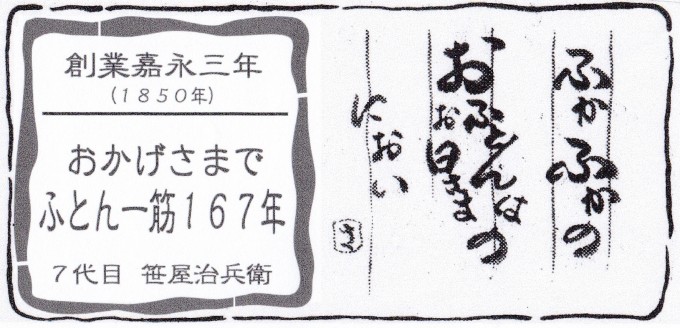 創業嘉永三年
(1850年)
おかげさまで
ふとん一筋167年
7代目 笹屋治兵衛
ふかふかの
おふとんは
お日さまの
におい